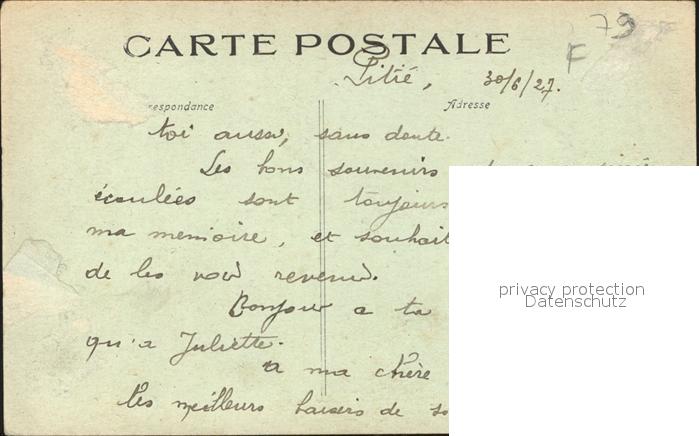 CARTE POSTALE
79
F
Pitié, 30/6/27.
respondance
Adresse
toi aussi, sans doute.
Les bons souvenirs
écoulées sont toujours
ma memoire, et souhait
de les voir revenir.
Bonjour a ta
qu'a Juliette.
a ma chère
les meilleurs baisers de so
privacy protection
Datenschutz